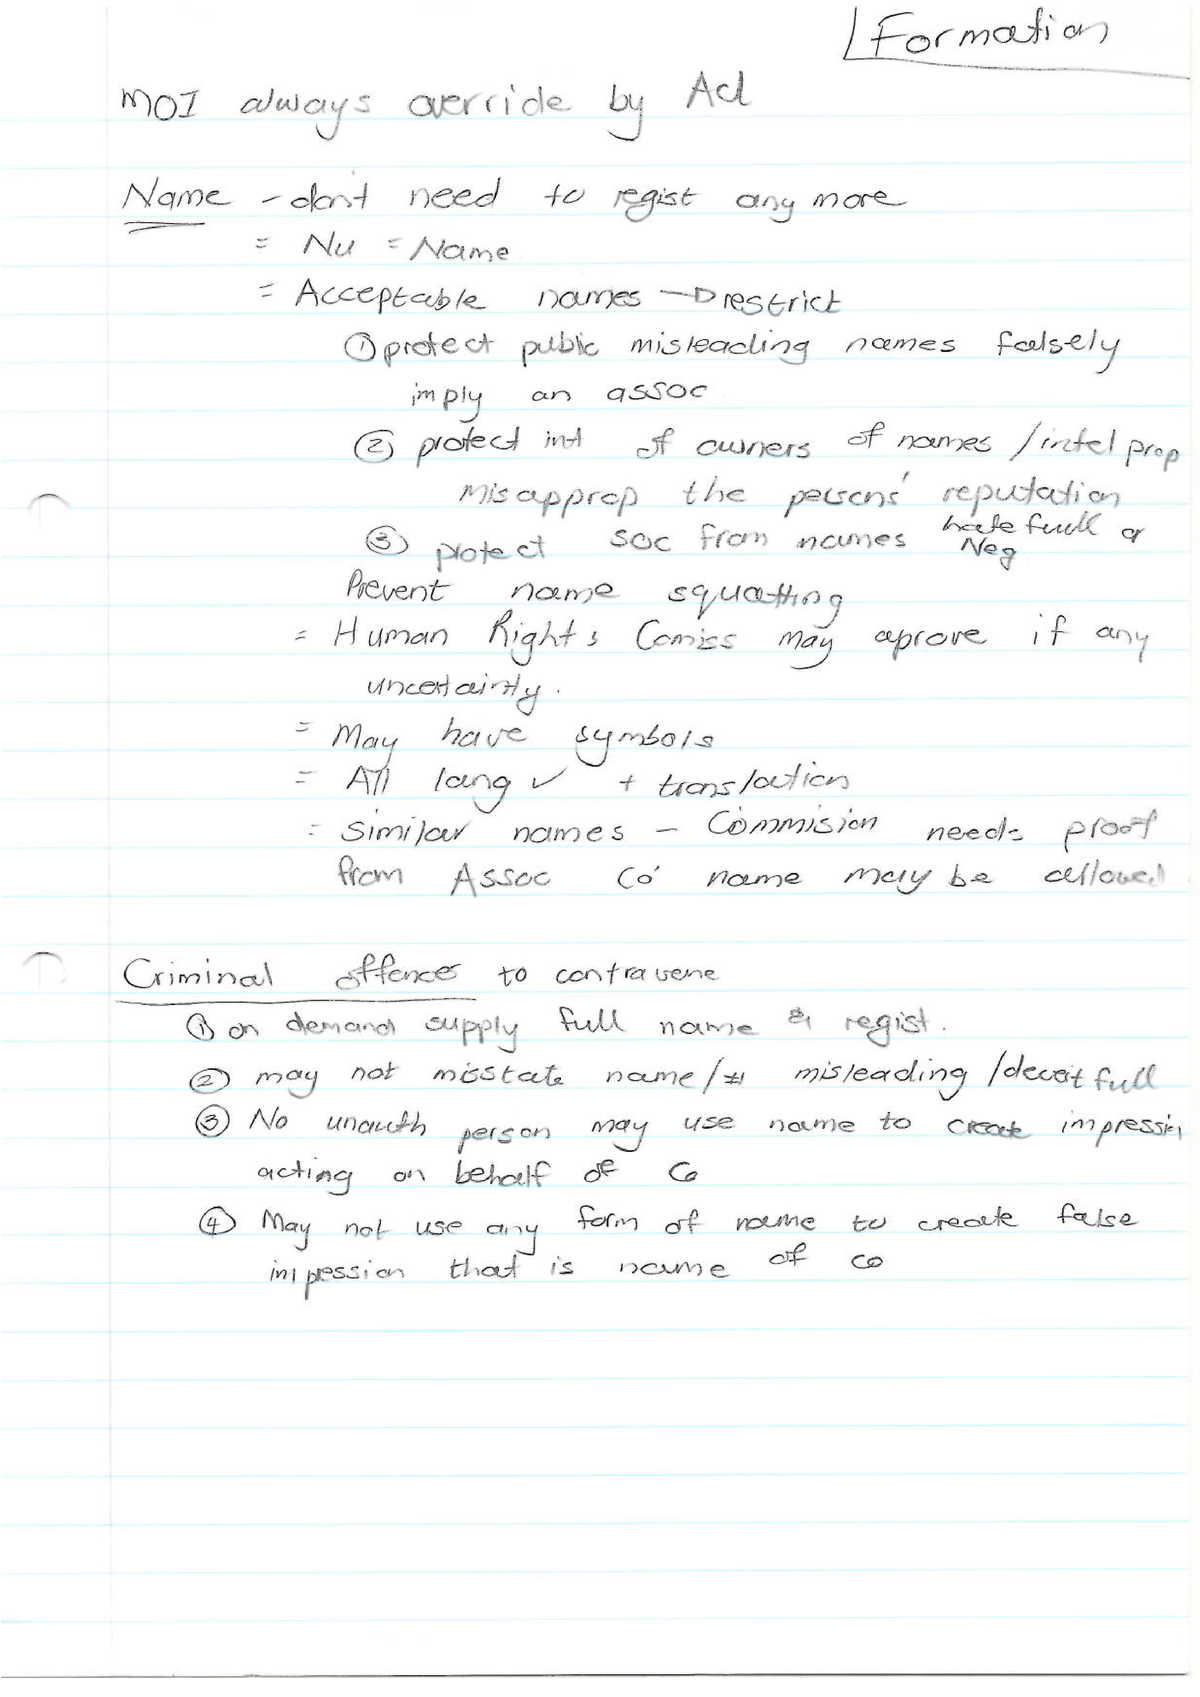 Formation
MOI always override by Act
Name - don't need to regist any more
= Nu = Name
= Acceptable names → restrict
① protect public misleading names falsely
imply an assoc
② protect int of owners of names / intel prop
misapprop the persons' reputation
③ protect soc from names hatefull or
Neg
Prevent name squatting
= Human Rights Comiss may aprove if any
uncertainty.
= May have symbols
= All lang ✓ + translation
= similar names - Commision needs proof
from Assoc Co name may be allowed
Criminal offences to contravene
① on demand supply full name & regist.
② may not misstate name/# misleading /deceitfull
③ No unauth person may use name to create impression
acting on behalf of Co
④ May not use any form of name to create false
impession that is name of co